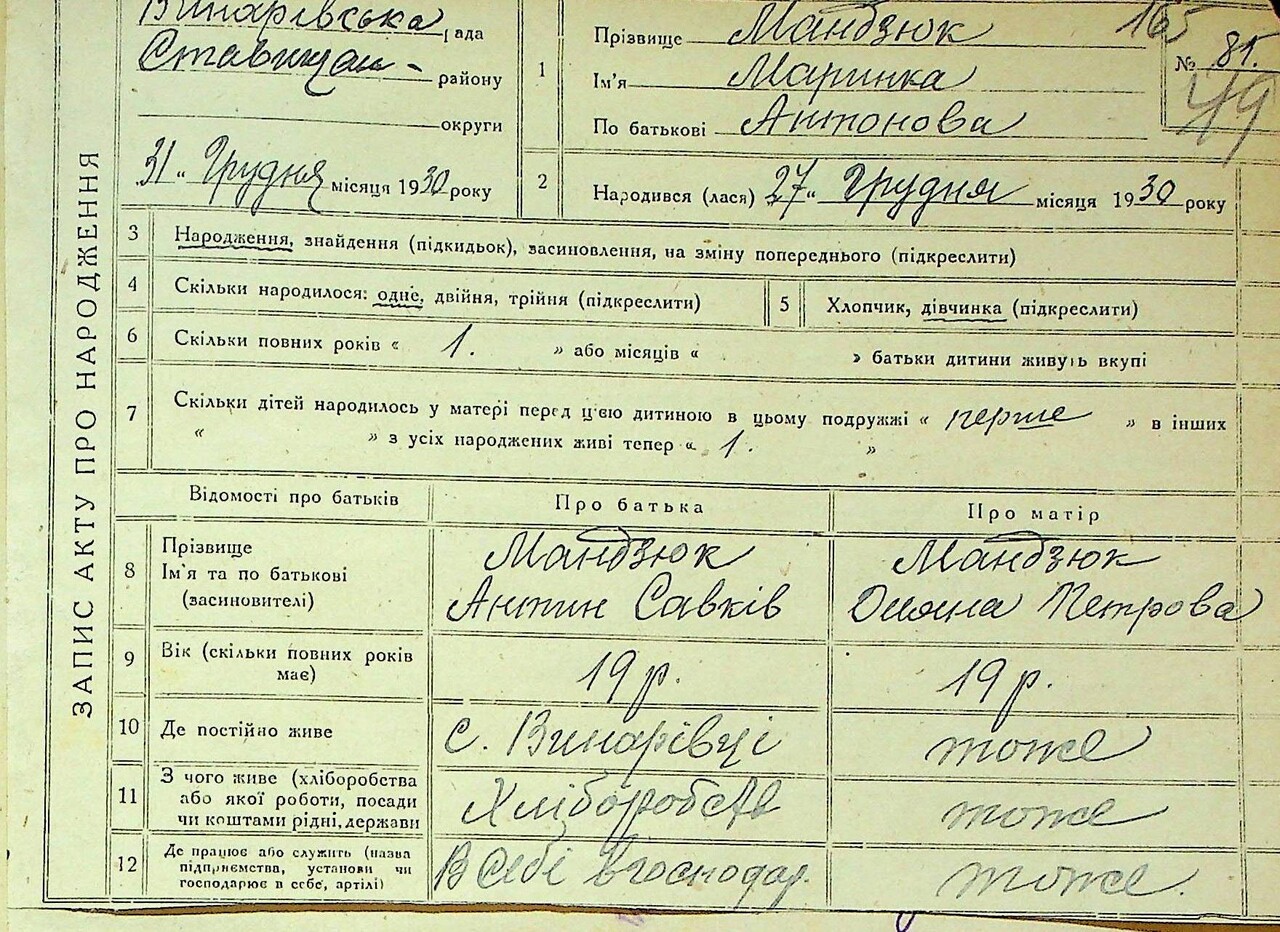 ЗАПИС АКТУ ПРО НАРОДЖЕННЯ
Винарівська рада
Ставищан- району
округи
31 " Грудня місяця 1930 року
1
Прізвище Мандзюк
Ім'я Маринка
По батькові Антонова
165
№ 85.
49
2
Народився (лася) 27 " Грудня місяця 1930 року
3 Народження, знайдення (підкидьок), засиновлення, на зміну попереднього (підкреслити)
4 Скільки народилося: одне, двійня, трійня (підкреслити)
5 Хлопчик, дівчинка (підкреслити)
6 Скільки повних років « 1. » або місяців « » батьки дитини живуть вкупі
7 Скільки дітей народилось у матері перед ц'єю дитиною в цьому подружжі « перше » в інших
« » з усіх народжених живі тепер « 1. »
Відомості про батьків Про батька Про матір
8 Прізвище Мандзюк Мандзюк
Ім'я та по батькові
(засиновителі) Антин Савків Оляна Петрова
9 Вік (скільки повних років
має) 19 р. 19 р.
10 Де постійно живе с. Винарівці тоже
11 З чого живе (хліборобства
або якої роботи, посади
чи коштами рідні, держави Хліборобств тоже
12 Де працює або служить (назва
підприємства, установи чи
господарює в себе, артілі) В себі в господар. тоже.